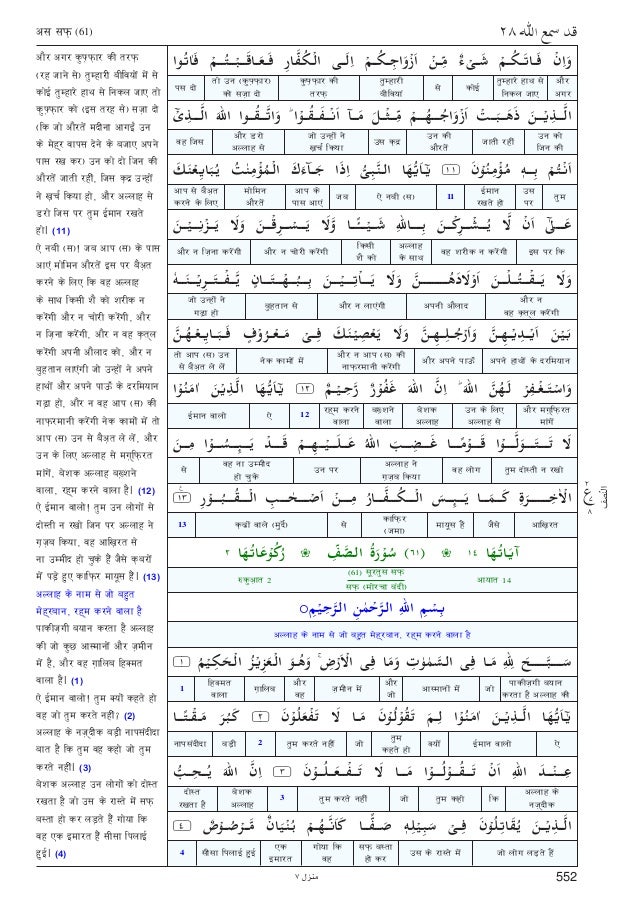 अस सफ़ (61)
قد سمع الله ٢٨
और अगर कुफ़्फ़ार की तरफ़
(रह जाने से) तुम्हारी बीवियों में से
कोई तुम्हारे हाथ से निकल जाए तो
कुफ़्फ़ार को (इस तरह से) सज़ा दो
(कि जो औरतें मदीना आगईं उन
के मेहर वापस देने के बजाए अपने
पास रख कर) उन को दो जिन की
औरतें जाती रहीं, जिस क़द्र उन्हों
ने ख़र्च किया हो, और अल्लाह से
डरो जिस पर तुम ईमान रखते
हो। (11)
ऐ नबी (स)! जब आप (स) के पास
आएं मोमिन औरतें इस पर बैअ़त
करने के लिए कि वह अल्लाह
के साथ किसी शै को शरीक न
करेंगी और न चोरी करेंगी, और
न ज़िना करेंगी, और न वह क़त्ल
करेंगी अपनी औलाद को, और न
बुहतान लाएंगी जो उन्हों ने अपने
हाथों और अपने पाऊँ के दरमियान
गढ़ा हो, और न वह आप (स) की
नाफ़रमानी करेंगी नेक कामों में तो
आप (स) उन से बैअ़त ले लें, और
उन के लिए अल्लाह से मग़फ़िरत
मांगें, बेशक अल्लाह बख़्शने
वाला, रहम करने वाला है। (12)
ऐ ईमान वालो! तुम उन लोगों से
दोस्ती न रखो जिन पर अल्लाह ने
ग़ज़ब किया, वह आख़िरत से
ना उम्मीद हो चुके हैं जैसे क़बरों
में पड़े हुए काफ़िर मायूस हैं। (13)
अल्लाह के नाम से जो बहुत
मेहरबान, रहम करने वाला है
पाकीज़गी बयान करता है अल्लाह
की जो कुछ आस्मानों और ज़मीन
में है, और वह ग़ालिब हिक्मत
वाला है। (1)
ऐ ईमान वालो! तुम क्यों कहते हो
वह जो तुम करते नहीं? (2)
अल्लाह के नज़्दीक बड़ी नापसंदीदा
बात है कि तुम वह कहो जो तुम
करते नहीं। (3)
बेशक अल्लाह उन लोगों को दोस्त
रखता है जो उस के रास्ते में सफ़
बस्ता हो कर लड़ते हैं गोया कि
वह एक इमारत हैं सीसा पिलाई
हुई। (4)
وَاِنْ فَاتَكُمْ شَىْءٌ مِّنْ اَزْوَاجِكُمْ اِلَى الْكُفَّارِ فَعَاقَبْتُمْ فَاٰتُوا
और अगर | तुम्हारे हाथ से निकल जाए | कोई | से | तुम्हारी बीवियां | कुफ़्फ़ार की तरफ़ | तो उन (कुफ़्फ़ार) को सज़ा दो | पस दो
الَّذِيْنَ ذَهَبَتْ اَزْوَاجُهُمْ مِّثْلَ مَآ اَنْفَقُوْا ۭ وَاتَّقُوا اللّٰهَ الَّذِىْٓ
उन को जिन की | जाती रहीं | उन की औरतें | उस क़द्र | जो उन्हों ने ख़र्च किया | और डरो अल्लाह से | वह जिस
اَنْتُمْ بِهٖ مُؤْمِنُوْنَ ١١ يٰٓاَيُّهَا النَّبِىُّ اِذَا جَآءَكَ الْمُؤْمِنٰتُ يُبَايِعْنَكَ
तुम | उस पर | ईमान रखते हो | 11 | ऐ नबी (स) | जब | आप के पास आएं | मोमिन औरतें | आप से बैअ़त करने के लिए
عَلٰٓى اَنْ لَّا يُشْرِكْنَ بِاللّٰهِ شَيْـًٔا وَّلَا يَسْرِقْنَ وَلَا يَزْنِيْنَ
इस पर कि | वह शरीक न करेंगी | अल्लाह के साथ | किसी शै को | और न चोरी करेंगी | और न ज़िना करेंगी
وَلَا يَقْتُلْنَ اَوْلَادَهُنَّ وَلَا يَاْتِيْنَ بِبُهْتَانٍ يَّفْتَرِيْنَهٗ
और न वह क़त्ल करेंगी | अपनी औलाद | और न लाएंगी | बुहतान से | जो उन्हों ने गढ़ा हो
بَيْنَ اَيْدِيْهِنَّ وَاَرْجُلِهِنَّ وَلَا يَعْصِيْنَكَ فِىْ مَعْرُوْفٍ فَبَايِعْهُنَّ
अपने हाथों के दरमियान | और अपने पाऊँ | और न आप (स) की नाफ़रमानी करेंगी | नेक कामों में | तो आप (स) उन से बैअ़त ले लें
وَاسْتَغْفِرْ لَهُنَّ اللّٰهَ ۭ اِنَّ اللّٰهَ غَفُوْرٌ رَّحِيْمٌ ١٢ يٰٓاَيُّهَا الَّذِيْنَ اٰمَنُوْا
और मग़फ़िरत मांगें | उन के लिए अल्लाह से | बेशक अल्लाह | बख़्शने वाला | रहम करने वाला | 12 | ऐ | ईमान वालो
لَا تَتَوَلَّوْا قَوْمًا غَضِبَ اللّٰهُ عَلَيْهِمْ قَدْ يَئِسُوْا مِنَ
तुम दोस्ती न रखो | वह लोग | अल्लाह ने ग़ज़ब किया | उन पर | वह ना उम्मीद हो चुके | से
الْاٰخِرَةِ كَمَا يَئِسَ الْكُفَّارُ مِنْ اَصْحٰبِ الْقُبُوْرِ ١٣
आख़िरत | जैसे | मायूस हैं | काफ़िर (जमा) | से | क़बों वाले (मुर्दे) | 13
اٰيَاتُهَا ١٤ ❀ (٦١) سُوْرَةُ الصَّفِّ ❀ رُكُوْعَاتُهَا ٢
आयात 14 | (61) सूरतुस सफ़ | रुकुआ़त 2
सफ़ (मोरचा बंदी)
بِسْمِ اللّٰهِ الرَّحْمٰنِ الرَّحِيْمِ
अल्लाह के नाम से जो बहुत मेहरबान, रहम करने वाला है
سَبَّحَ لِلّٰهِ مَا فِى السَّمٰوٰتِ وَمَا فِى الْاَرْضِ ۚ وَهُوَ الْعَزِيْزُ الْحَكِيْمُ ١
पाकीज़गी बयान करता है अल्लाह की | जो | आस्मानों में | और जो | ज़मीन में | और वह | ग़ालिब | हिक्मत वाला | 1
يٰٓاَيُّهَا الَّذِيْنَ اٰمَنُوْا لِمَ تَقُوْلُوْنَ مَا لَا تَفْعَلُوْنَ ٢ كَبُرَ مَقْتًا
ऐ | ईमान वालो | क्यों | तुम कहते हो | जो | तुम करते नहीं | 2 | बड़ी | नापसंदीदा
عِنْدَ اللّٰهِ اَنْ تَقُوْلُوْا مَا لَا تَفْعَلُوْنَ ٣ اِنَّ اللّٰهَ يُحِبُّ
अल्लाह के नज़्दीक | कि | तुम कहो | जो | तुम करते नहीं | 3 | बेशक अल्लाह | दोस्त रखता है
الَّذِيْنَ يُقَاتِلُوْنَ فِىْ سَبِيْلِهٖ صَفًّا كَاَنَّهُمْ بُنْيَانٌ مَّرْصُوْصٌ ٤
जो लोग लड़ते हैं | उस के रास्ते में | सफ़ बस्ता हो कर | गोया कि वह | एक इमारत | सीसा पिलाई हुई | 4
٢
ع
٨
الصف
منزل ٧
552